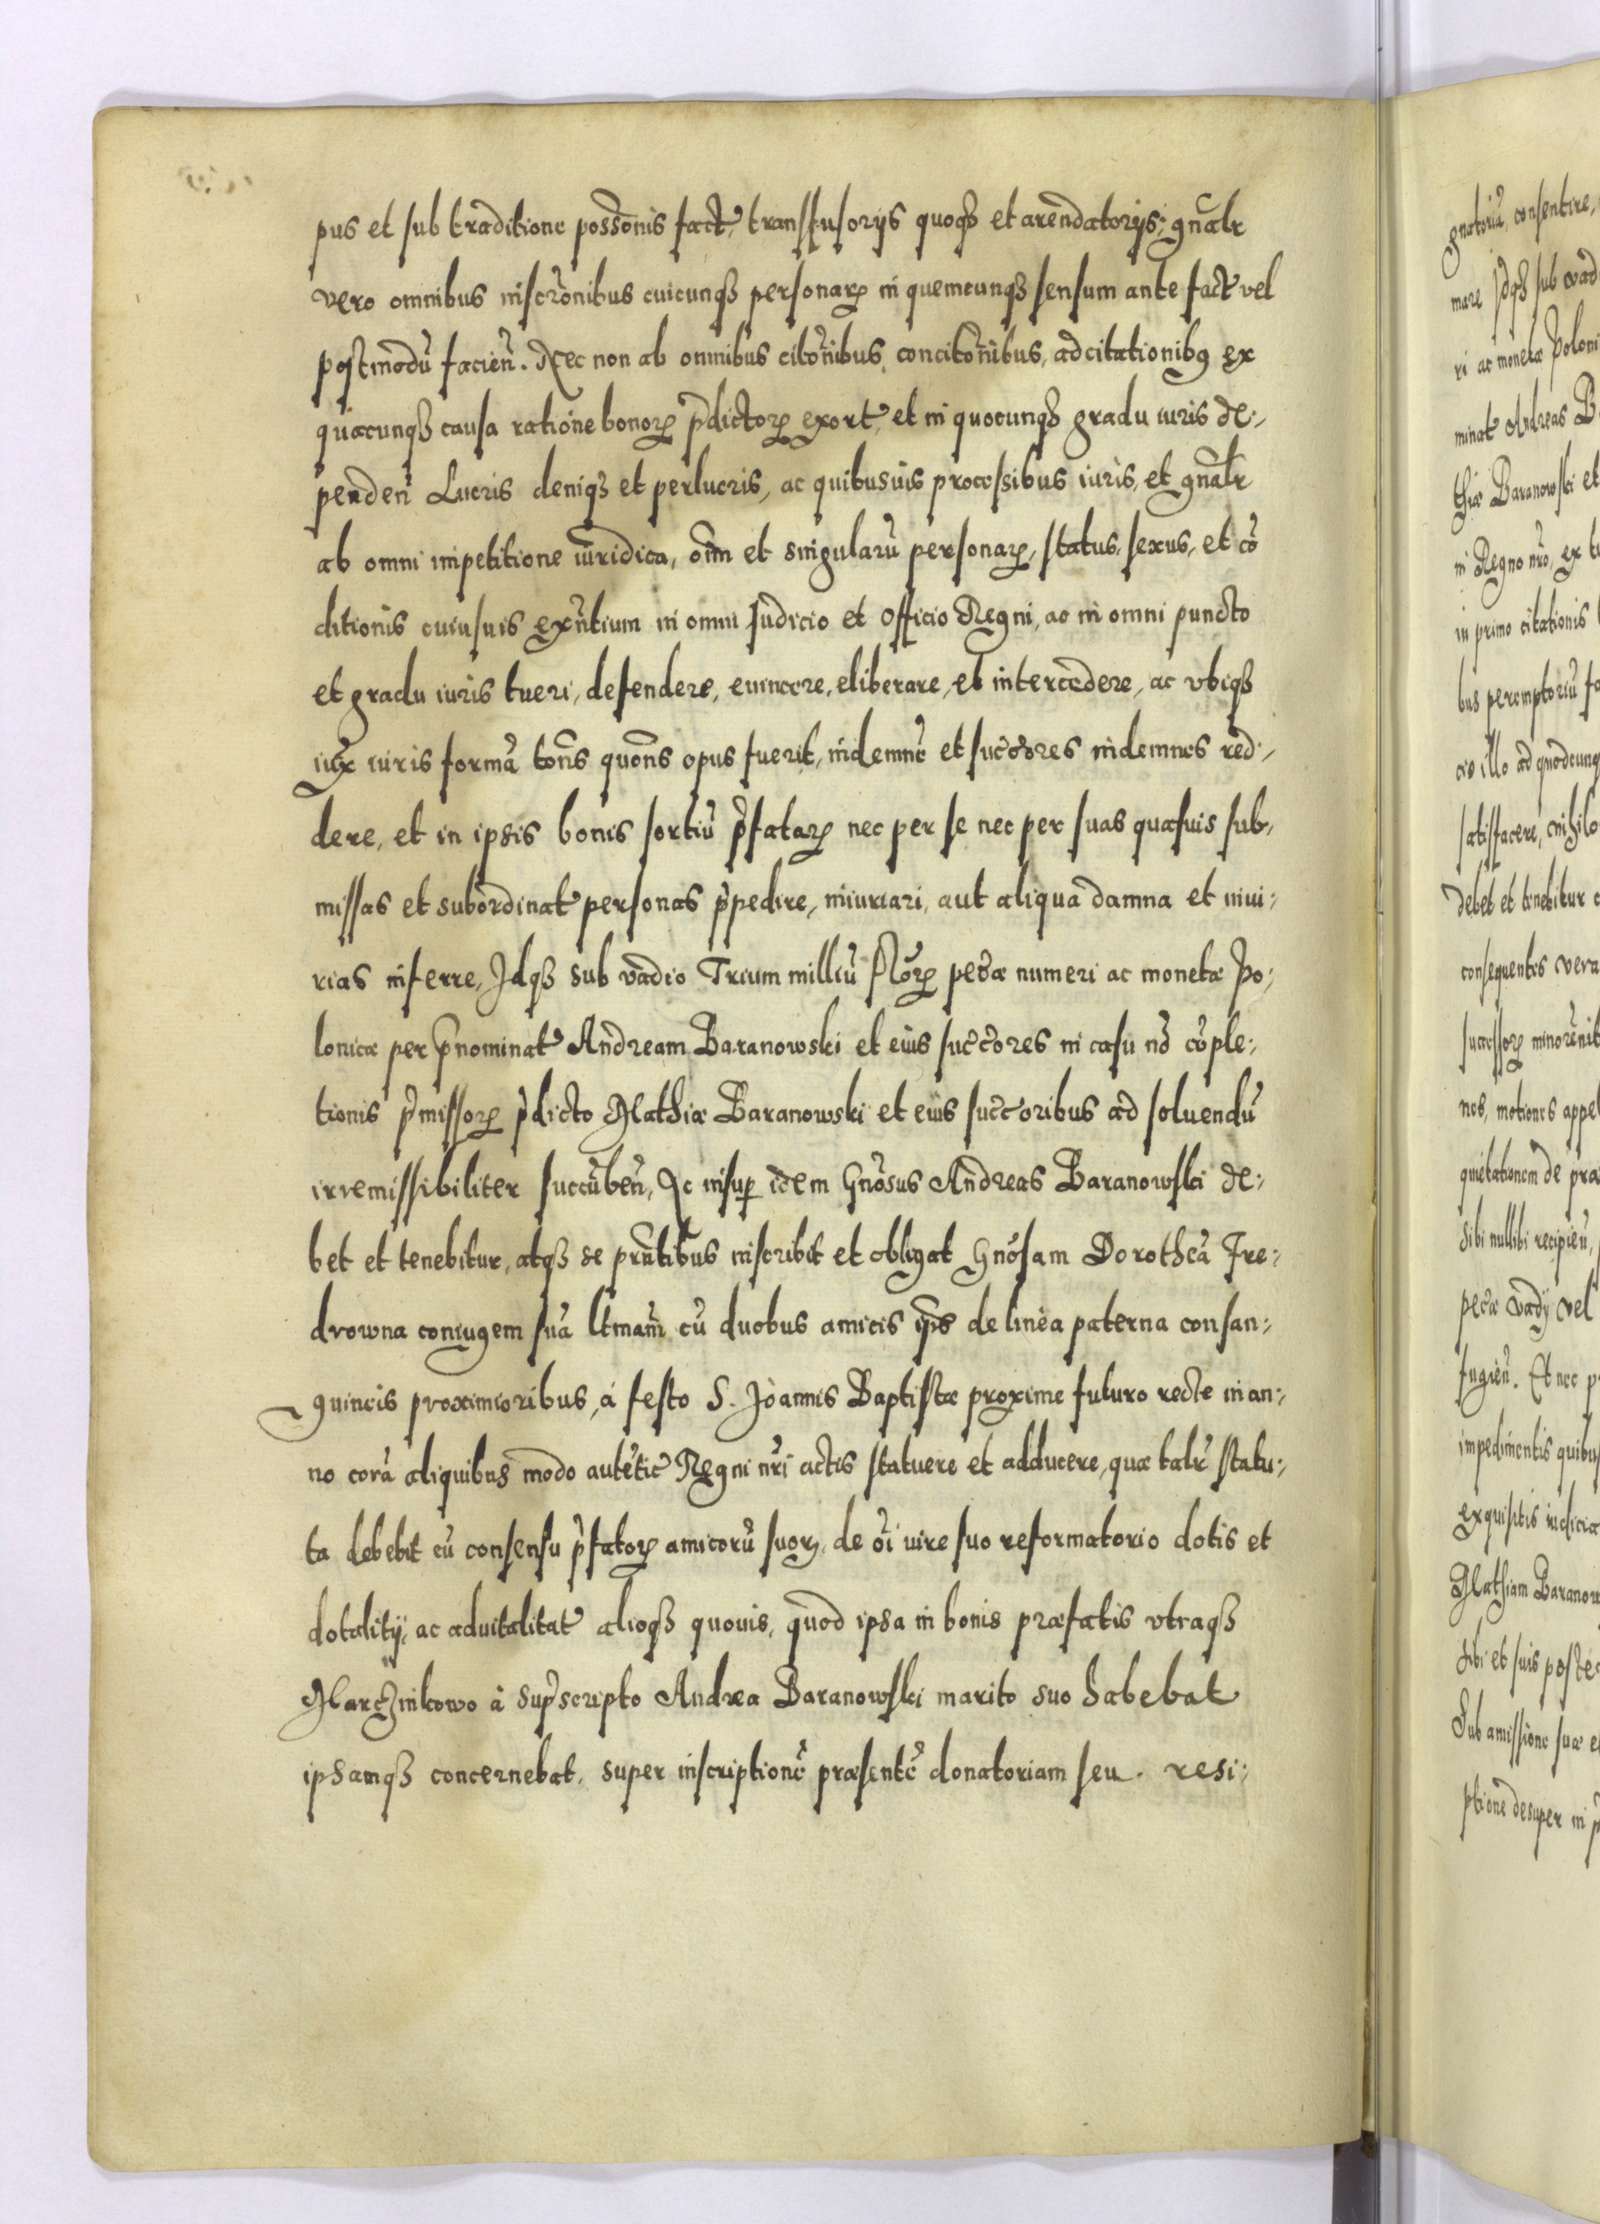 pus et sub traditione possõnis fact, transfusorijs quoqз et arendatorijs, gñalr
vero omnibus inscrõnibus cuicunqз personarꝝ in quemcunqз sensum ante fact vel
postmodũ facień. Nec non ab omnibus citõnibus, concitõnibus, adcitationibꝯ ex
quacunqз causa ratione bonorꝝ p̃dictorꝝ exort, et in quocunqз gradu iuris de-
pendeñ Lucris deniqз et perlucris, ac quibusuis processibus iuris, et gñalr
ab omni impetitione iuridica, oĩm et singularũ personarꝝ, status, sexus, et cõ
ditionis cuiusuis exñtium in omni Judicio et Officio Regni, ac in omni puncto
et gradu iuris tueri, defendere, euincere, eliberare, et intercedere, ac vbiqз
iux iuris formã toñs quoñs opus fuerit, indemñe et succ̃ores indemnes red-
dere, et in ipsis bonis sortiũ p̃fatarꝝ nec per se nec per suas quasuis sub-
missas et subordinat personas p̃pedire, iniuriari, aut aliqua damna et iniu-
rias inferre, Jdqз sub vadio Trium milliũ Florꝝ pecæ numeri ac monetæ Po-
lonicæ per p̃nominat Andream Baranowski et eius succ̃ores in casu nõ cõple-
tionis p̃missorꝝ p̃dicto Mathiæ Baranowski et eius succ̃oribus ad soluendũ
irremissibiliter succũbeñ, Ac insuꝑ idem Gñosus Andreas Baranowski de-
bet et tenebitur, atqз se prñtibus inscribit et obligat Gñosam Dorotheã Fre-
drowna coniugem suã ltmam cũ duobus amicis ip̃s de linea paterna consan-
guineis proximioribus, à festo S. Joannis Baptistæ proxime futuro recte in an-
no corã aliquibus modo autẽtic Regni nr̃i actis statuere et adducere, quæ talr̃ statu-
ta debebit cũ consensu p̃fatorꝝ amicorũ suorꝝ, de oĩ iure suo reformatorio dotis et
dotalitij, ac aduitalitat alioqз quouis, quod ipsa in bonis præfatis vtraqз
Marczinkowo à sup̃scripto Andrea Baranowski marito suo habebat
ipsamqз concernebat, super inscriptionẽ præsentẽ donatoriam seu resi-
gnatoriã consentire,
mare Jdqз sub vad
ri ac monetæ Poloni
minat Andreas B
thiæ Baranowski et
in Regno nr̃o, ex
in primo citationis
bus peremptoriũ
cio illo ad quodcunq
satisfacere, nihilo
debet et tenebitur
consequentes vera
successorꝝ minorẽnit
nes, motiones appel
quietationem de præ
sibi nullibi recipieñ,
pecæ vadij vel
fugieñ. Et nec
impedimentis quibus
exquisitis iudicia
Mathiam Baranow
sibi et suis poste
Sub amissione suæ
ptione desuper in